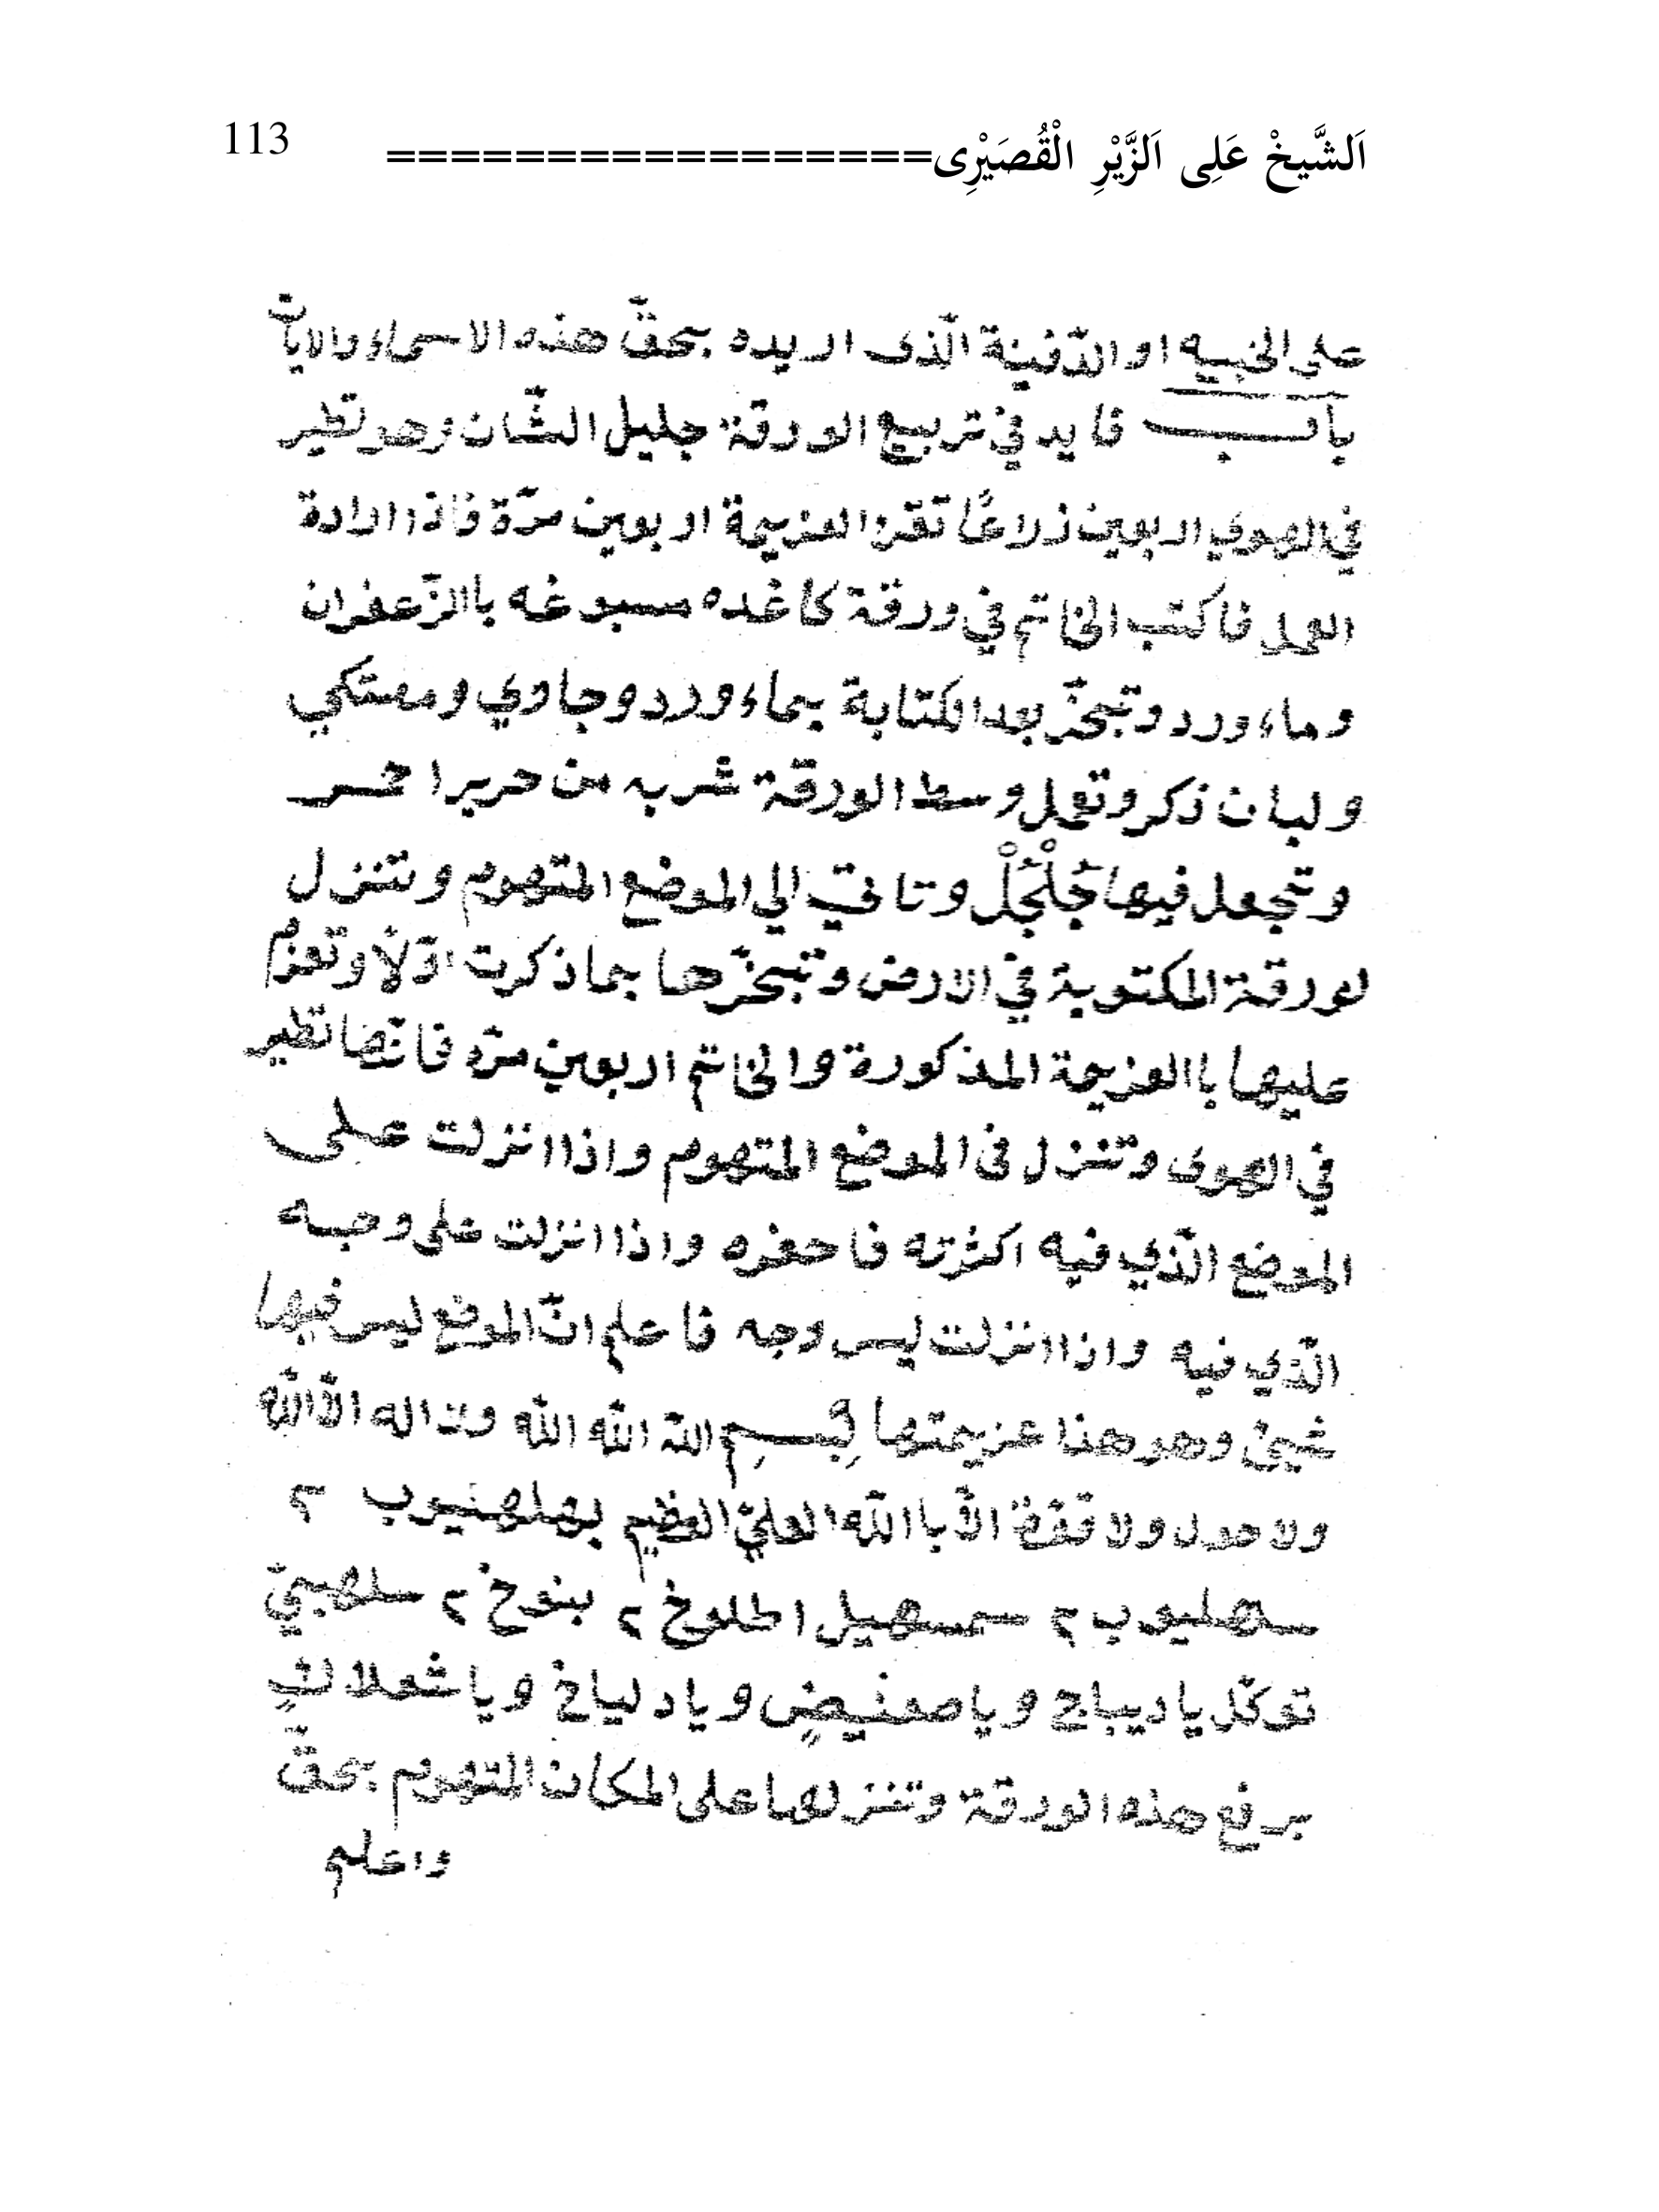 اَلشَّيخْ عَلِى اَلزَّيْرِ الْقُصَيْرِى================= 113
على الخبيه او الدّفينة الّذى اريده بحقّ هذه الاسماء والايات
باب فايد في تربيع الورقة جليل الشّان وهو تطير
في الهوي اربعين ذراعًا تقرا العزيمة اربعين مرّة فاذا ارادة
العمل فاكتب الخاتم في ورقة كاغده مسبوغه باالزّعفران
وماء ورد وتبخّر بعد الكتابة بماء ورد وجاوي ومصتكي
ولبان ذكر وتعمل وسط الورقة شربه من حرير احمر
وتجعل فيها جُلْجُلْ وتاتي الي الموضع المتهوم وتنزل
لورقة المكتوبة في الارض وتبخّرها بما ذكرت اوّلاً وتعزم
عليها باالعزيمة المذكورة والخاتم اربعين مرّه فانّها تطير
في الهوى وتنزل فى الموضع المتهوم واذا انزلت على
الموضع الّذي فيه اكثرته فاحفره واذا انزلت على وجه
الّذي فيه واذا انزلت ليس وجه فاعلم انّ الموضع ليس فيها
شيئ وهو هذا عزيمتها بِسمِ اللّه اللّه اللّه ولا اله الاّ اللّه
ولا حول ولا قوّة الاّ باالله العليّ العظيم بهلهنيوب ٢
سلهليوب ٢ سمسهيل اطلوخ ٢ بنوخ ٢ سلهبيّ
توكّل يا ديباج ويا صعنيضٍ ويا دلياخ ويا شعلاثٍ
برفع هذه الورقة وتنزلها على المكان المتهوم بحقّ
واعلم